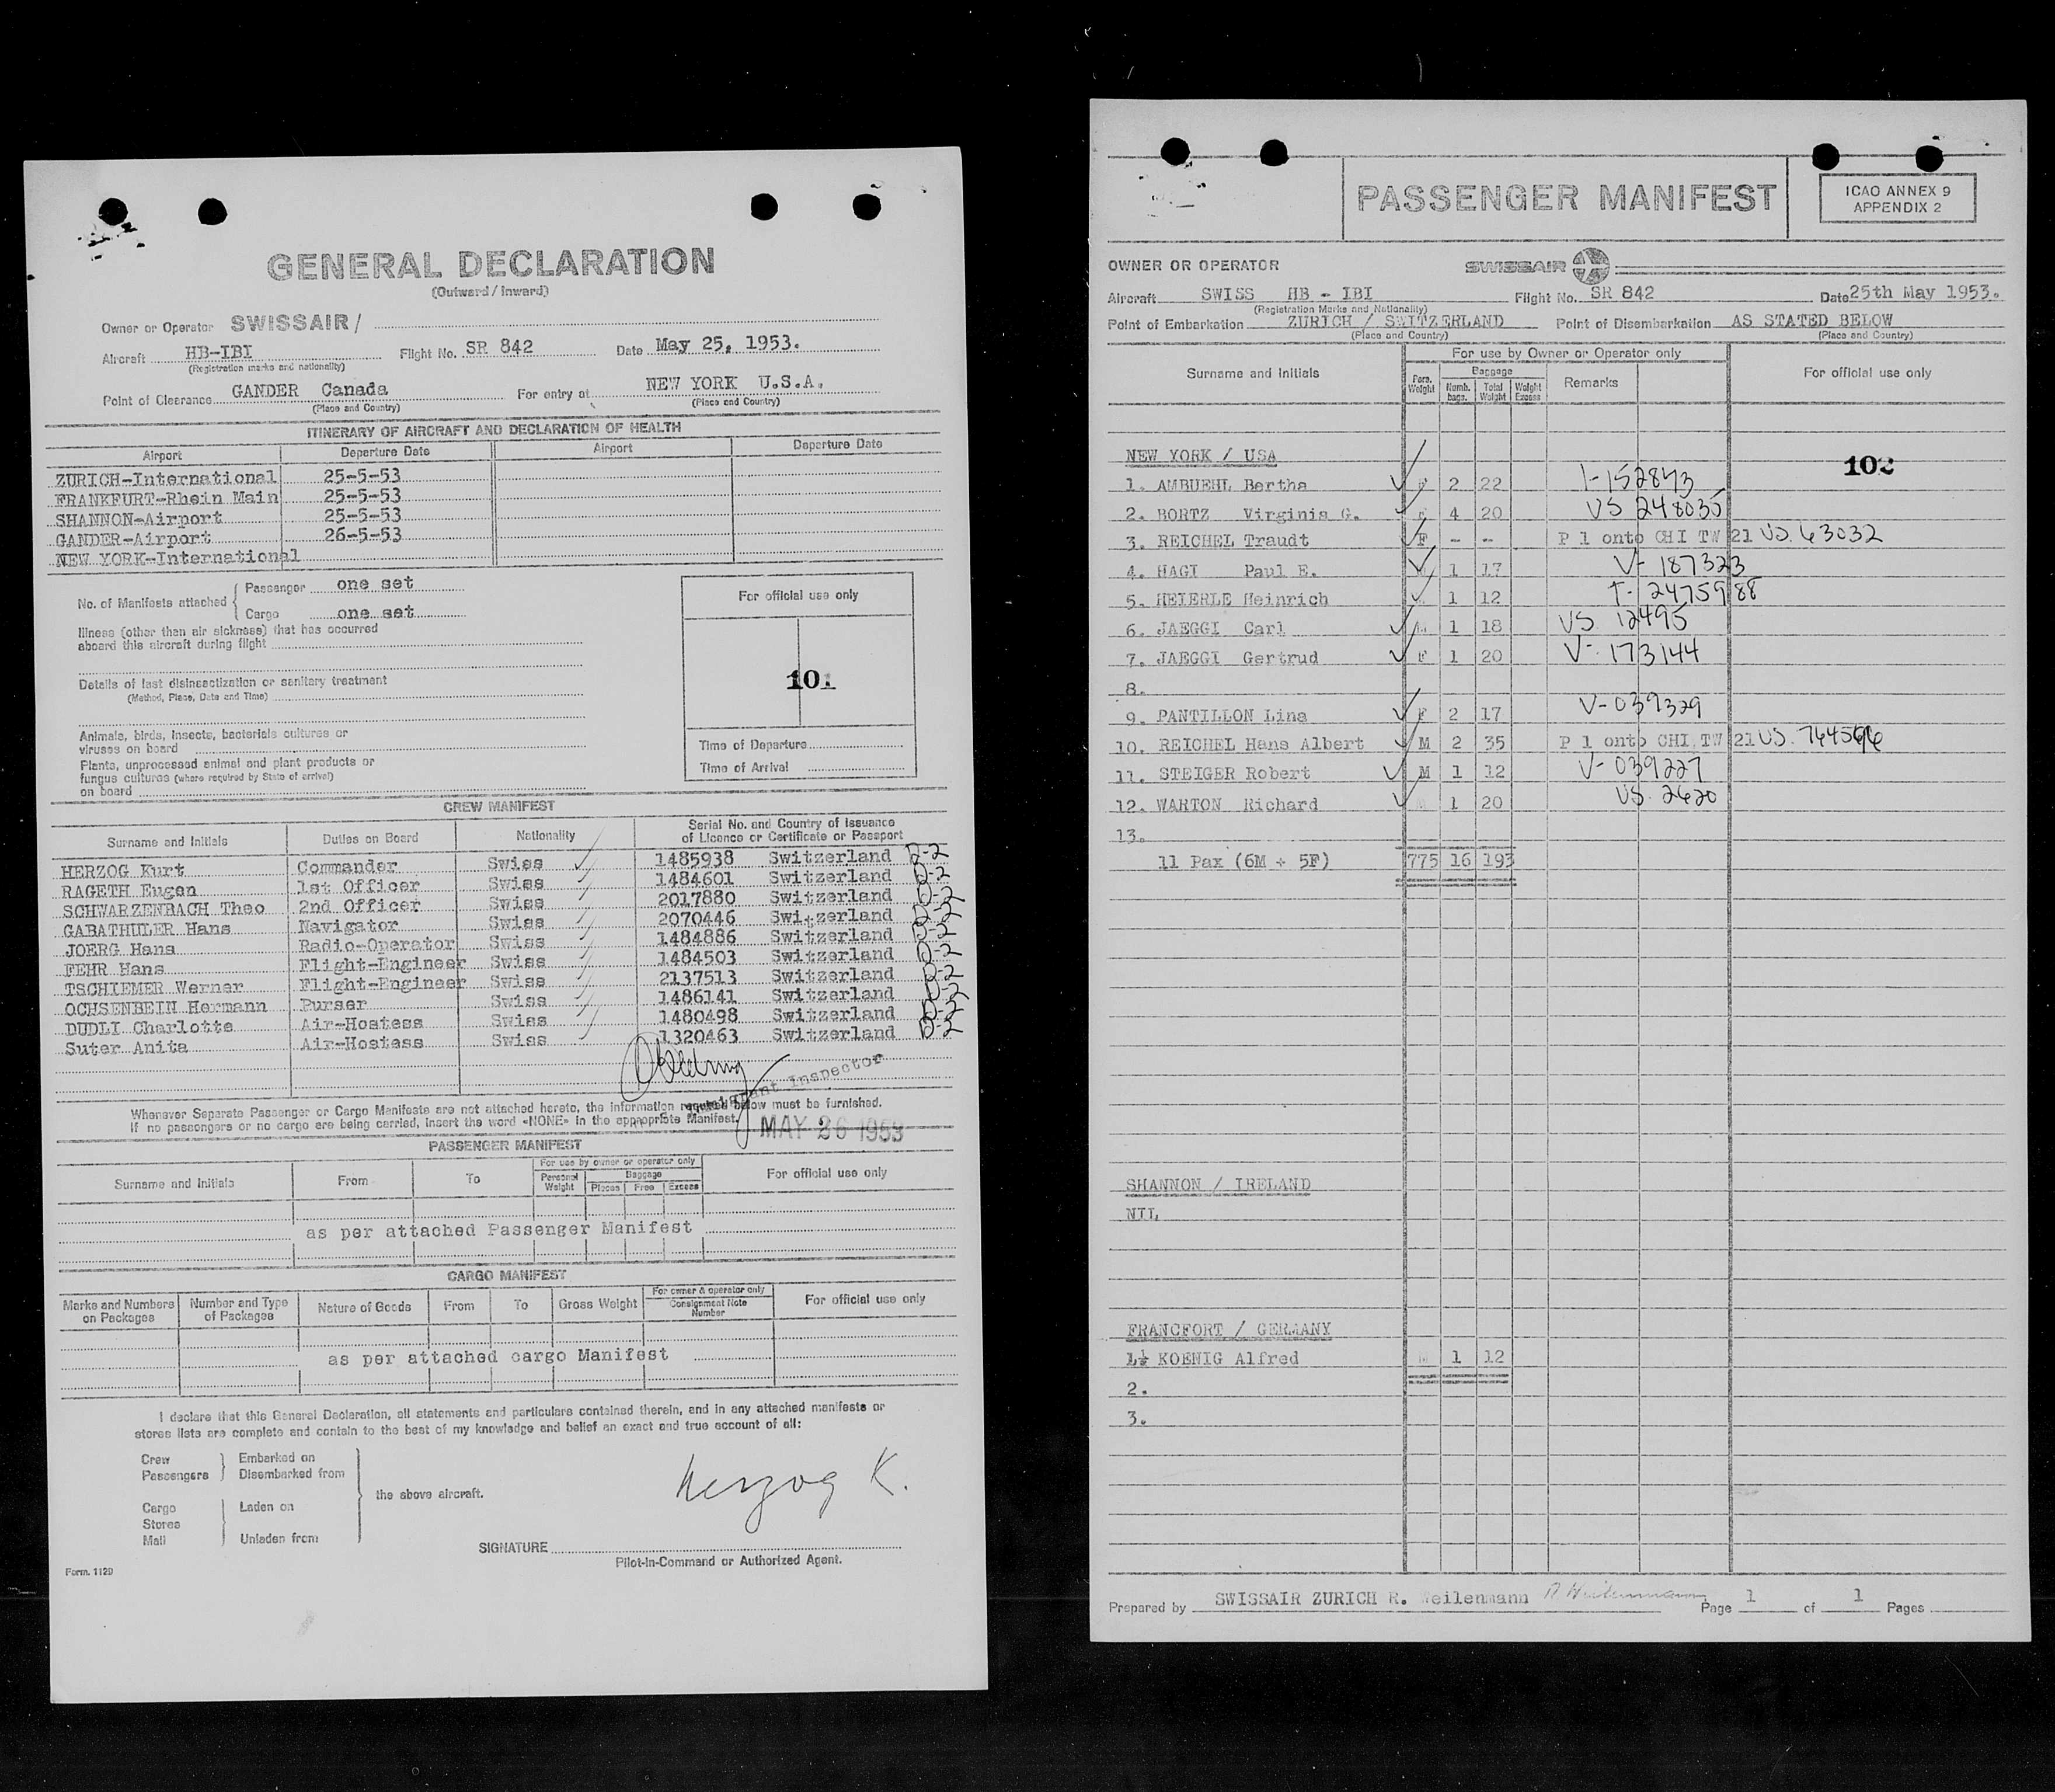 GENERAL DECLARATION
(Outward / Inward)
Owner or Operator SWISSAIR /
Aircraft HB-IBI Flight No. SR 842 Date May 25, 1953.
(Registration marks and nationality)
Point of Clearance GANDER Canada For entry at NEW YORK U.S.A.
(Place and Country) (Place and Country)
ITINERARY OF AIRCRAFT AND DECLARATION OF HEALTH
Airport Departure Date Airport Departure Date
ZURICH-International 25-5-53
FRANKFURT-Rhein Main 25-5-53
SHANNON-Airport 25-5-53
GANDER-Airport 26-5-53
NEW YORK-International
No. of Manifests attached { Passenger one set
Cargo one set
For official use only
Illness (other than air sickness) that has occurred
aboard this aircraft during flight
Details of last disinsectization or sanitary treatment
(Method, Place, Date and Time)
101
Animals, birds, insects, bacterials cultures or
viruses on board
Plants, unprocessed animal and plant products or
fungus cultures (where required by State of arrival)
on board
Time of Departure
Time of Arrival
CREW MANIFEST
Surname and Initials Duties on Board Nationality Serial No. and Country of Issuance
of Licence or Certificate or Passport
HERZOG Kurt Commander Swiss 1485938 Switzerland D-2
RAGETH Eugen 1st Officer Swiss 1484601 Switzerland D-2
SCHWARZENBACH Theo 2nd Officer Swiss 2017880 Switzerland D-2
GABATHULER Hans Navigator Swiss 2070446 Switzerland D-2
JOERG Hans Radio-Operator Swiss 1484886 Switzerland D-2
FEHR Hans Flight-Engineer Swiss 1484503 Switzerland D-2
TSCHIEMER Werner Flight-Engineer Swiss 2137513 Switzerland D-2
OCHSENBEIN Hermann Purser Swiss 1486141 Switzerland D-2
DUDLI Charlotte Air-Hostess Swiss 1480498 Switzerland D-2
Suter Anita Air-Hostess Swiss 1320463 Switzerland D-2
Inspector
Whenever Separate Passenger or Cargo Manifests are not attached hereto, the information required below must be furnished.
If no passengers or no cargo are being carried, insert the word «NONE» in the appropriate Manifest.
MAY 26 1953
PASSENGER MANIFEST
Surname and Initials From To For use by owner or operator only For official use only
Personal Weight Baggage
Pieces Free Excess
as per attached Passenger Manifest
CARGO MANIFEST
Marks and Numbers on Packages Number and Type of Packages Nature of Goods From To Gross Weight For owner & operator only For official use only
Consignment Note Number
as per attached cargo Manifest
I declare that this General Declaration, all statements and particulars contained therein, and in any attached manifests or
stores lists are complete and contain to the best of my knowledge and belief an exact and true account of all:
Crew Embarked on
Passengers Disembarked from
the above aircraft.
Cargo Laden on
Stores
Mail Unladen from
Herzog K.
SIGNATURE
Pilot-in-Command or Authorized Agent.
Form. 1129
PASSENGER MANIFEST
ICAO ANNEX 9
APPENDIX 2
OWNER OR OPERATOR SWISSAIR
Aircraft SWISS HB - IBI Flight No. SR 842 Date 25th May 1953.
(Registration Marks and Nationality)
Point of Embarkation ZURICH / SWITZERLAND Point of Disembarkation AS STATED BELOW
(Place and Country) (Place and Country)
Surname and Initials For use by Owner or Operator only For official use only
Pers. Weight Baggage Remarks
Numb. bags. Total Weight Weight Excess
NEW YORK / USA
102
1. AMBUEHL Bertha F 2 22 I-152873
2. BORTZ Virginia G. F 4 20 US 248035
3. REICHEL Traudt F - -- P 1 onto CHI TW 21 US. 63032
4. HAGI Paul E. M 1 17 V- 187323
5. HEIERLE Heinrich M 1 12 T- 2475988
6. JAEGGI Carl M 1 18 US 12495
7. JAEGGI Gertrud F 1 20 V- 173144
8.
9. PANTILLON Lina F 2 17 V-039329
10. REICHEL Hans Albert M 2 35 P 1 onto CHI TW 21 US.
11. STEIGER Robert M 1 12 V-039227
12. WARTON Richard M 1 20 US. 2620
13.
11 Pax (6M + 5F) 775 16 193
SHANNON / IRELAND
NIL
FRANCFORT / GERMANY
1. KOENIG Alfred M 1 12
2.
3.
Prepared by SWISSAIR ZURICH R. Weilenmann R Weilenmann Page 1 of 1 Pages